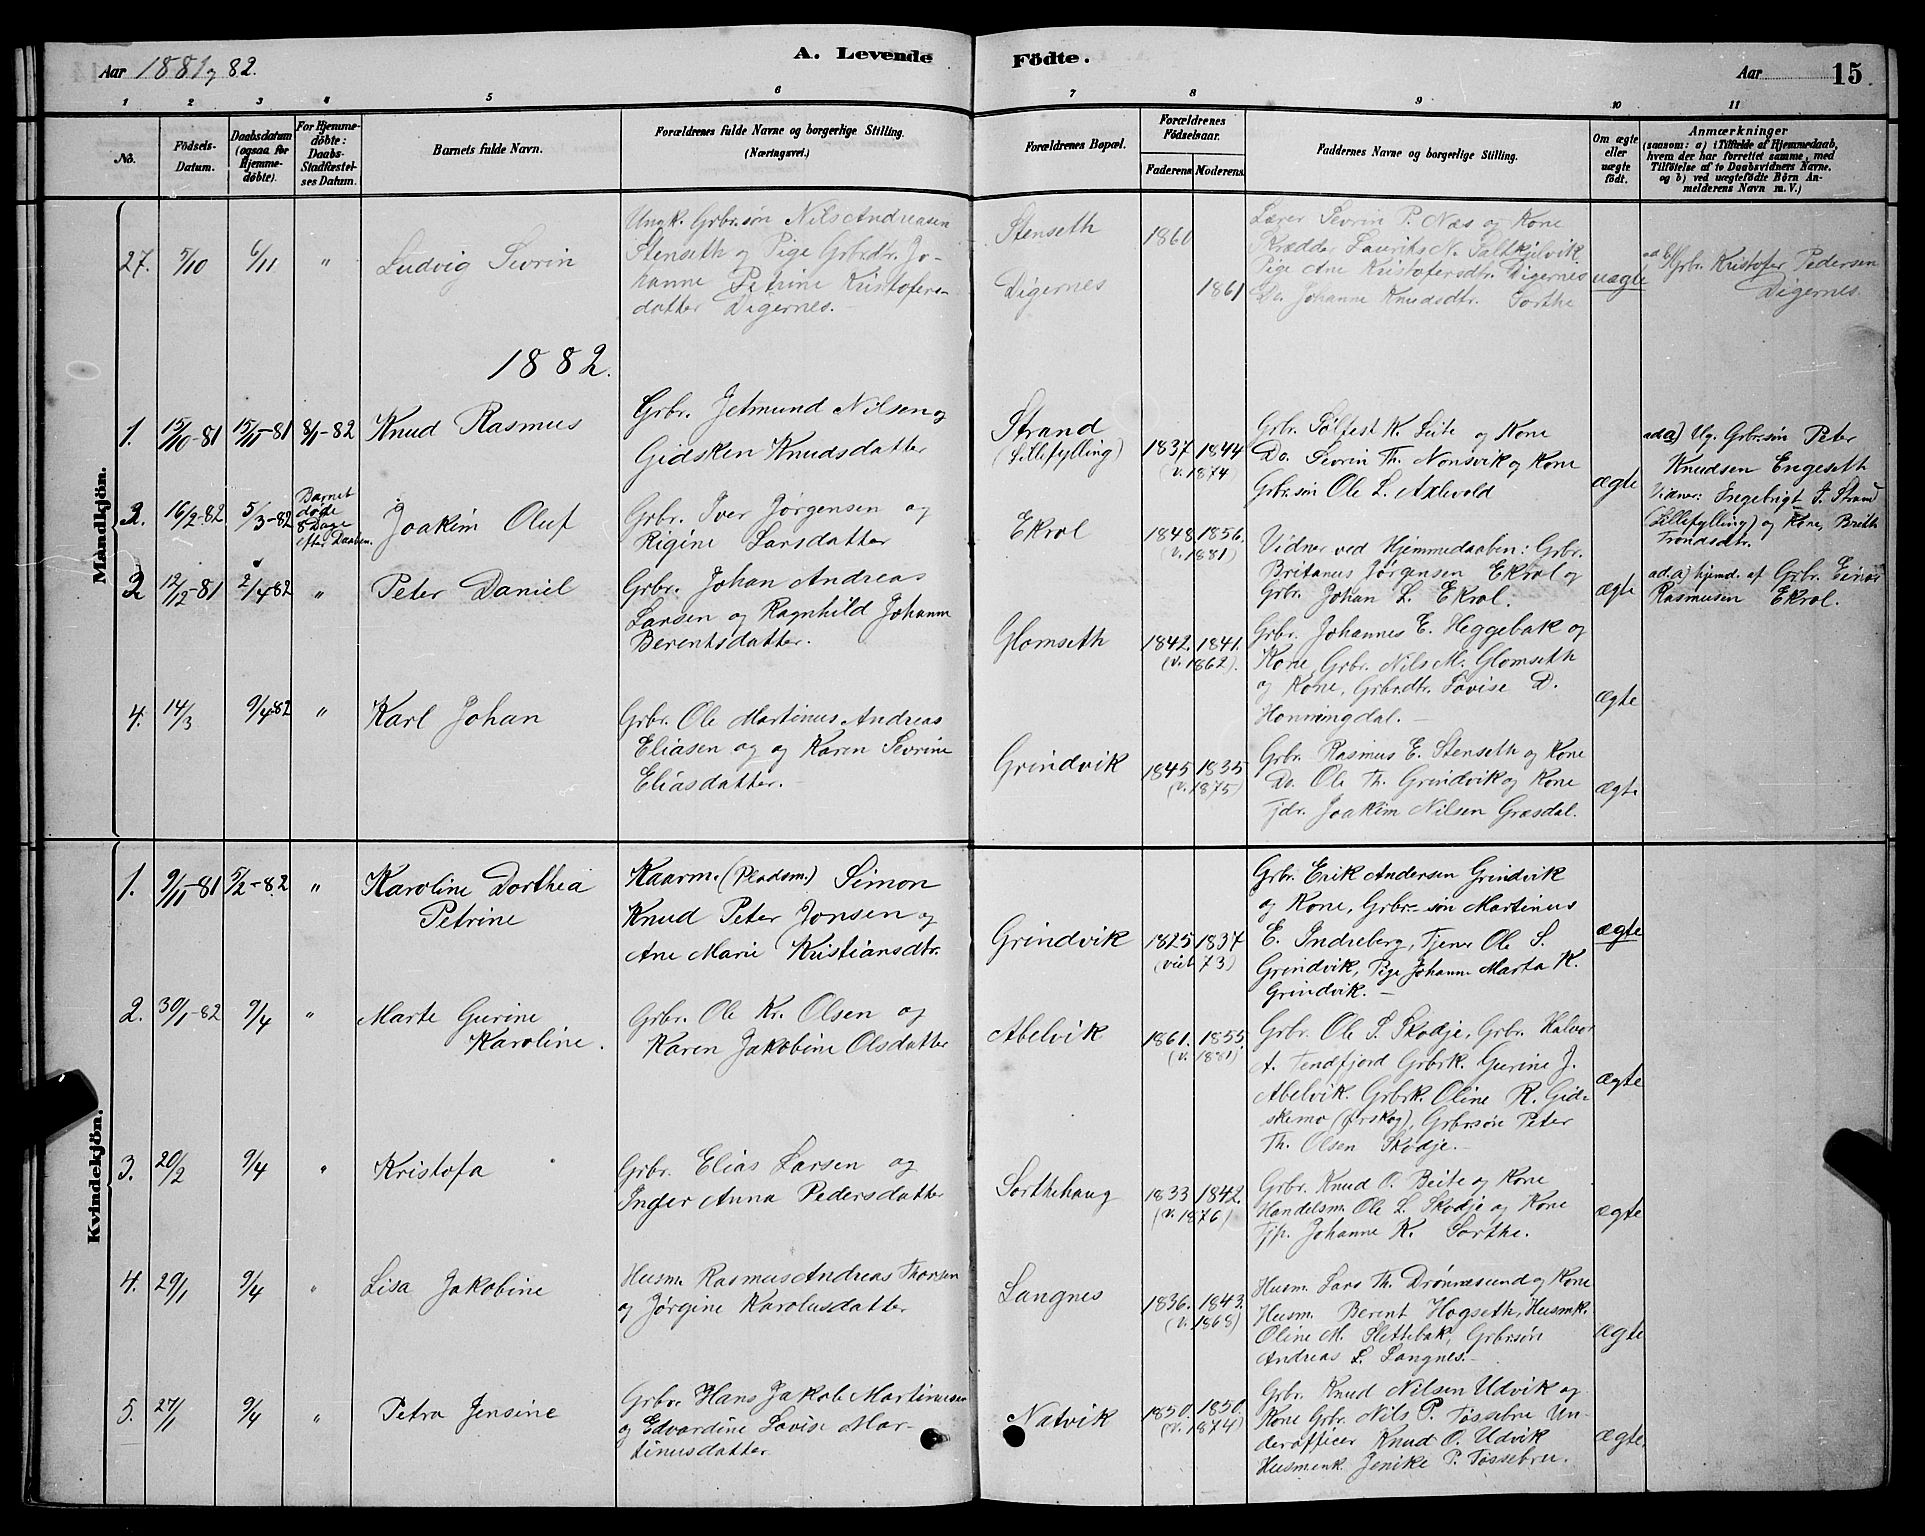 Aar 1881 og 82.
A. Levende
Födte.
Aar
15
1 2 3 4 5 6 7 8 9 10 11
No.
Födsels-Datum.
Daabsdatum (ogsaa for Hjemme-döbte).
For Hjemme-döbte: Daabs-Stadfæstelses Datum.
Barnets fulde Navn.
Forældrenes fulde Navne og borgerlige Stilling.
(Næringsvei.)
Forældrenes Bopæl.
Forældrenes Födselsaar.
Faderens
Moderens
Faddernes Navne og borgerlige Stilling.
Om ægte eller uægte födt.
Anmærkninger
(saasom: a) i Tilfælde af Hjemmedaab, hvem der har forrettet samme, med Tilföielse af to Daabsvidners Navne, og b) ved uægtefödte Börn Anmelderens Navn m. V.)
Mandkjön.
27. 5/10 6/11 " Ludvig Sevrin
Ungk. Grbr.søn Nils Andreasen
Stenseth og Pige Grbrdtr. Jo-
hanne Petrine Kristofers-
datter Digernes.
Stenseth
Digernes
1860
1861
Lærer Sevrin P. Næs og Kone
Skrædder Laurits N. Saltkjelvik
Pige Ane Kristofersdtr. Digernes
Do. Johanne Knudsdtr. Sorthe
uægte
ad b) Grbr. Kristofer Pedersen
Digernes.
1882.
1. 15/10-81 15/11-81 8/1-82 Knud Rasmus
Grbr. Jetmund Nilsen og
Gidsken Knudsdatter
Strand
(Lillefylling)
1837 1844
(v. 1874)
Grbr. Sølfest K. Leite og Kone
Do. Sevrin Th. Nonsvik og Kone
Grbr.søn Ole L. Axlvold
ægte
ad a) Ug. Grbr.søn Peter
Knudsen Engeseth
Vidner: Ingebrigt J. Strand
(Lillefylling) og Kone, Brithe
Trondsdtr.
2. 16/2-82 5/3-82
Barnet
døde
8 Dage
efter Daaben.
Joakim Oluf
Grbr. Iver Jørgensen og
Rigine Larsdatter
Ekrol
1848 1856.
(v. 1881)
Vidner ved Hjemmedaaben: Grbr.
Britanus Jørgensen Ekrol og
Grbr. Johan L. Ekrol.
ægte
ad a) hjemd. af Grbr. Einar
Rasmusen Ekrol.
3 12/12-81 2/4-82 " Peter Daniel
Grbr. Johan Andreas
Larsen og Ragnhild Johanne
Berentsdatter.
Glomseth
1842. 1841.
(v. 1862).
Grbr. Johannes E. Heggebak og
Kone, Grbr. Nils M. Glomseth
og Kone, Grbrdtr. Lovise D.
Honningdal.
ægte
4. 14/3 9/4-82 " Karl Johan
Grbr. Ole Martinus Andreas
Eliasen og og Karen Sevrine
Eliasdatter.
Grindvik
1845 1835
(v. 1875)
Grbr. Rasmus E. Stenseth og Kone
Do. Ole Th. Grindvik og Kone
Tjdr. Joakim Nilsen Græsdal.
ægte
Kvindekjön.
1. 9/11-81 5/2-82. " Karoline Dorthea
Petrine
Kaarm. (Pladsm.) Simon
Knud Peter Jonsen og
Ane Marie Kristiansdtr.
Grindvik
1825 1837
(viet 73)
Grbr. Erik Andersen Grindvik
og Kone, Grbr-søn Martinus
E. Indreberg, Tjener Ole S.
Grindvik, Pige Johanne Marta K.
Grindvik.
ægte
2. 30/1-82 9/4 " Marte Gurine
Karoline.
Grbr. Ole Kr. Olsen og
Karen Jakobine Olsdatter
Abelvik
1861. 1855.
(v. 1881)
Grbr. Ole S. Skodje, Grbr. Halvor
A. Tendfjord Grbrk. Gurine J.
Abelvik. Grbrk. Oline R. Gid-
skemo (Ørskog), Grbrsøn Peter
Th. Olsen Skodje.
ægte
3. 20/2 9/4 " Kristofa
Grbr. Elias Larsen og
Inger Anna Pedersdatter
Sorthehaug
1833 1842.
(v. 1876)
Grbr. Knud O. Beite og Kone
Handelsm. Ole L. Skodje og Kone
Tjp. Johanne K. Sorthe.
ægte
4. 29/1 9/4 " Lisa Jakobine
Husm. Rasmus Andreas Thorsen
og Jørgine Karolusdatter
Langnes
1836. 1843.
(v. 1868)
Husm. Lars Th. Drønnesund og Kone
Husm. Berent Hogseth, Husmk.
Oline M. Slettebak, Grbrsøn
Andreas L. Langnes.
ægte
5. 27/1 9/4 " Petra Jensine
Grbr. Hans Jakob Martinusen
og Edvardine Lovise Mar-
tinusdatter
Natvik
1850. 1850.
(v. 1874)
Grbr. Knud Nilsen Udvik og
Kone Grbr. Nils P. Tøssebru Un-
derofficer Knud O. Udvik
Husmenk. Jenike P. Tøssebru.
ægte.